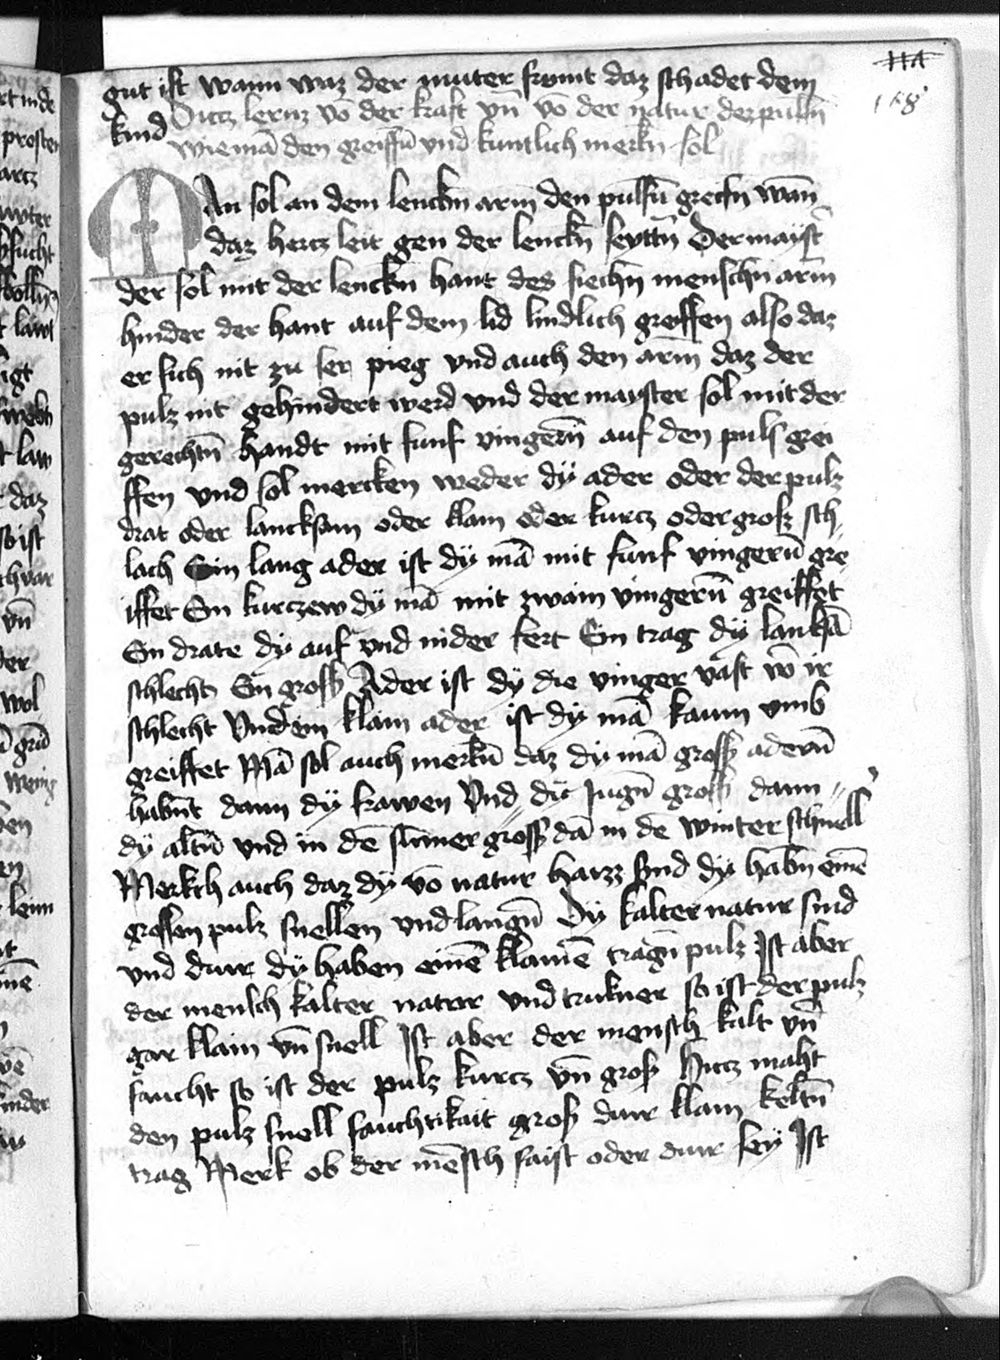 114
158
gut ist wann waz der muter frumt daz schadet dem
kind Hie lernz vō der kraft vn̄ vō der natur dez pulsn̄
wie mā den greiffn̄ vnd kuntlich merkn̄ sol
MAn sol an dem lenckn̄ arm den pulsn̄ greifn̄ wān
daz hercz leit gen der lenckn̄ seyttn̄ Der mayst̄
der sol mit der lenckn̄ hant des siechn̄ menschn̄ arm
hinder der hant auf dem lid lindlich greiffen also daz
er sich nit zu ser pieg vnd auch den arm daz der
pulz nit gehindert werd vnd der mayster sol mit der
gerechtn̄ handt mit funf vingern̄ auf den puls grei
ffen vnd sol mercken weder dy ader oder der pulz
drat oder lancksam oder klain oder kurcz oder grosz sch
lach Ein lang ader ist dy mā mit funf vingern̄ gre
iffet Ein kurczew dy mā mit zwain vingern̄ greiffet
Ein drate dy auf vnd nider fert Ein trag dy lanksā
schlecht Ein grosß Ader ist dy die vinger vast vō ir
schlecht Vnd ein klain ader ist dy mā kaum vmb
greiffet Mā sol auch merkn̄ daz dy mā grosß adern̄
habn̄t dann dy frawen Vnd dy Jugn̄ grosß dann
dy altn̄ vnd in dē sumer grosß dā in dē winter schnell
Merkch auch daz dy vō natur haizz sind dy habn̄ einē
grossen pulz snellen vnd langn̄ Dy kalter natur sind
vnd durr dy haben einē klainē tragn̄ pulz Ist aber
der mensch kalter natur vnd trukner so ist der pulz
gar klain vn̄ snell Ist aber der mensch kalt vn̄
faucht so ist der pulz kurcz vn̄ grosß Hicz maht
den pulz snell fauchtikait grosß durr klain keltn̄
trag Merk ob der mēsch faist oder durr sey Ist